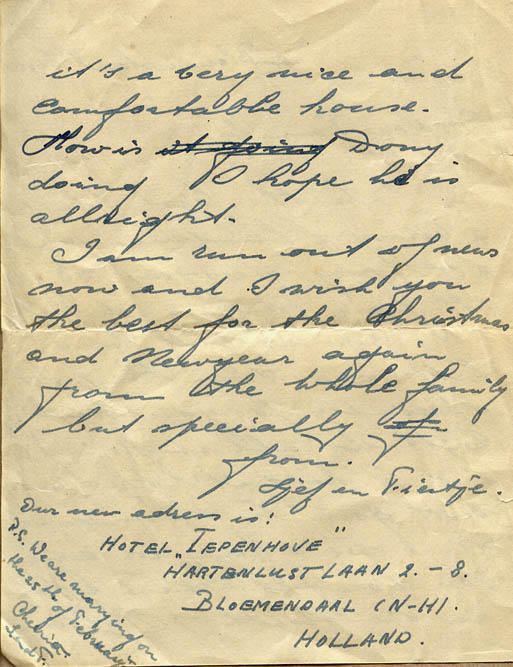 it's a very nice and
comfortable house.
How is it going Dony
doing I hope he is
allright.
I am run out of news
now and I wish you
the best for the Christmas
and Newyear again
from the whole family
but specially
from.
Sjef en Fientje.
Our new adress is:
HOTEL „IEPENHOVE"
HARTENLUSTLAAN 2.-8.
BLOEMENDAAL (N-H).
HOLLAND.
P.S. We are marrying on
the 25th of February.
Cheerio.
S and F.